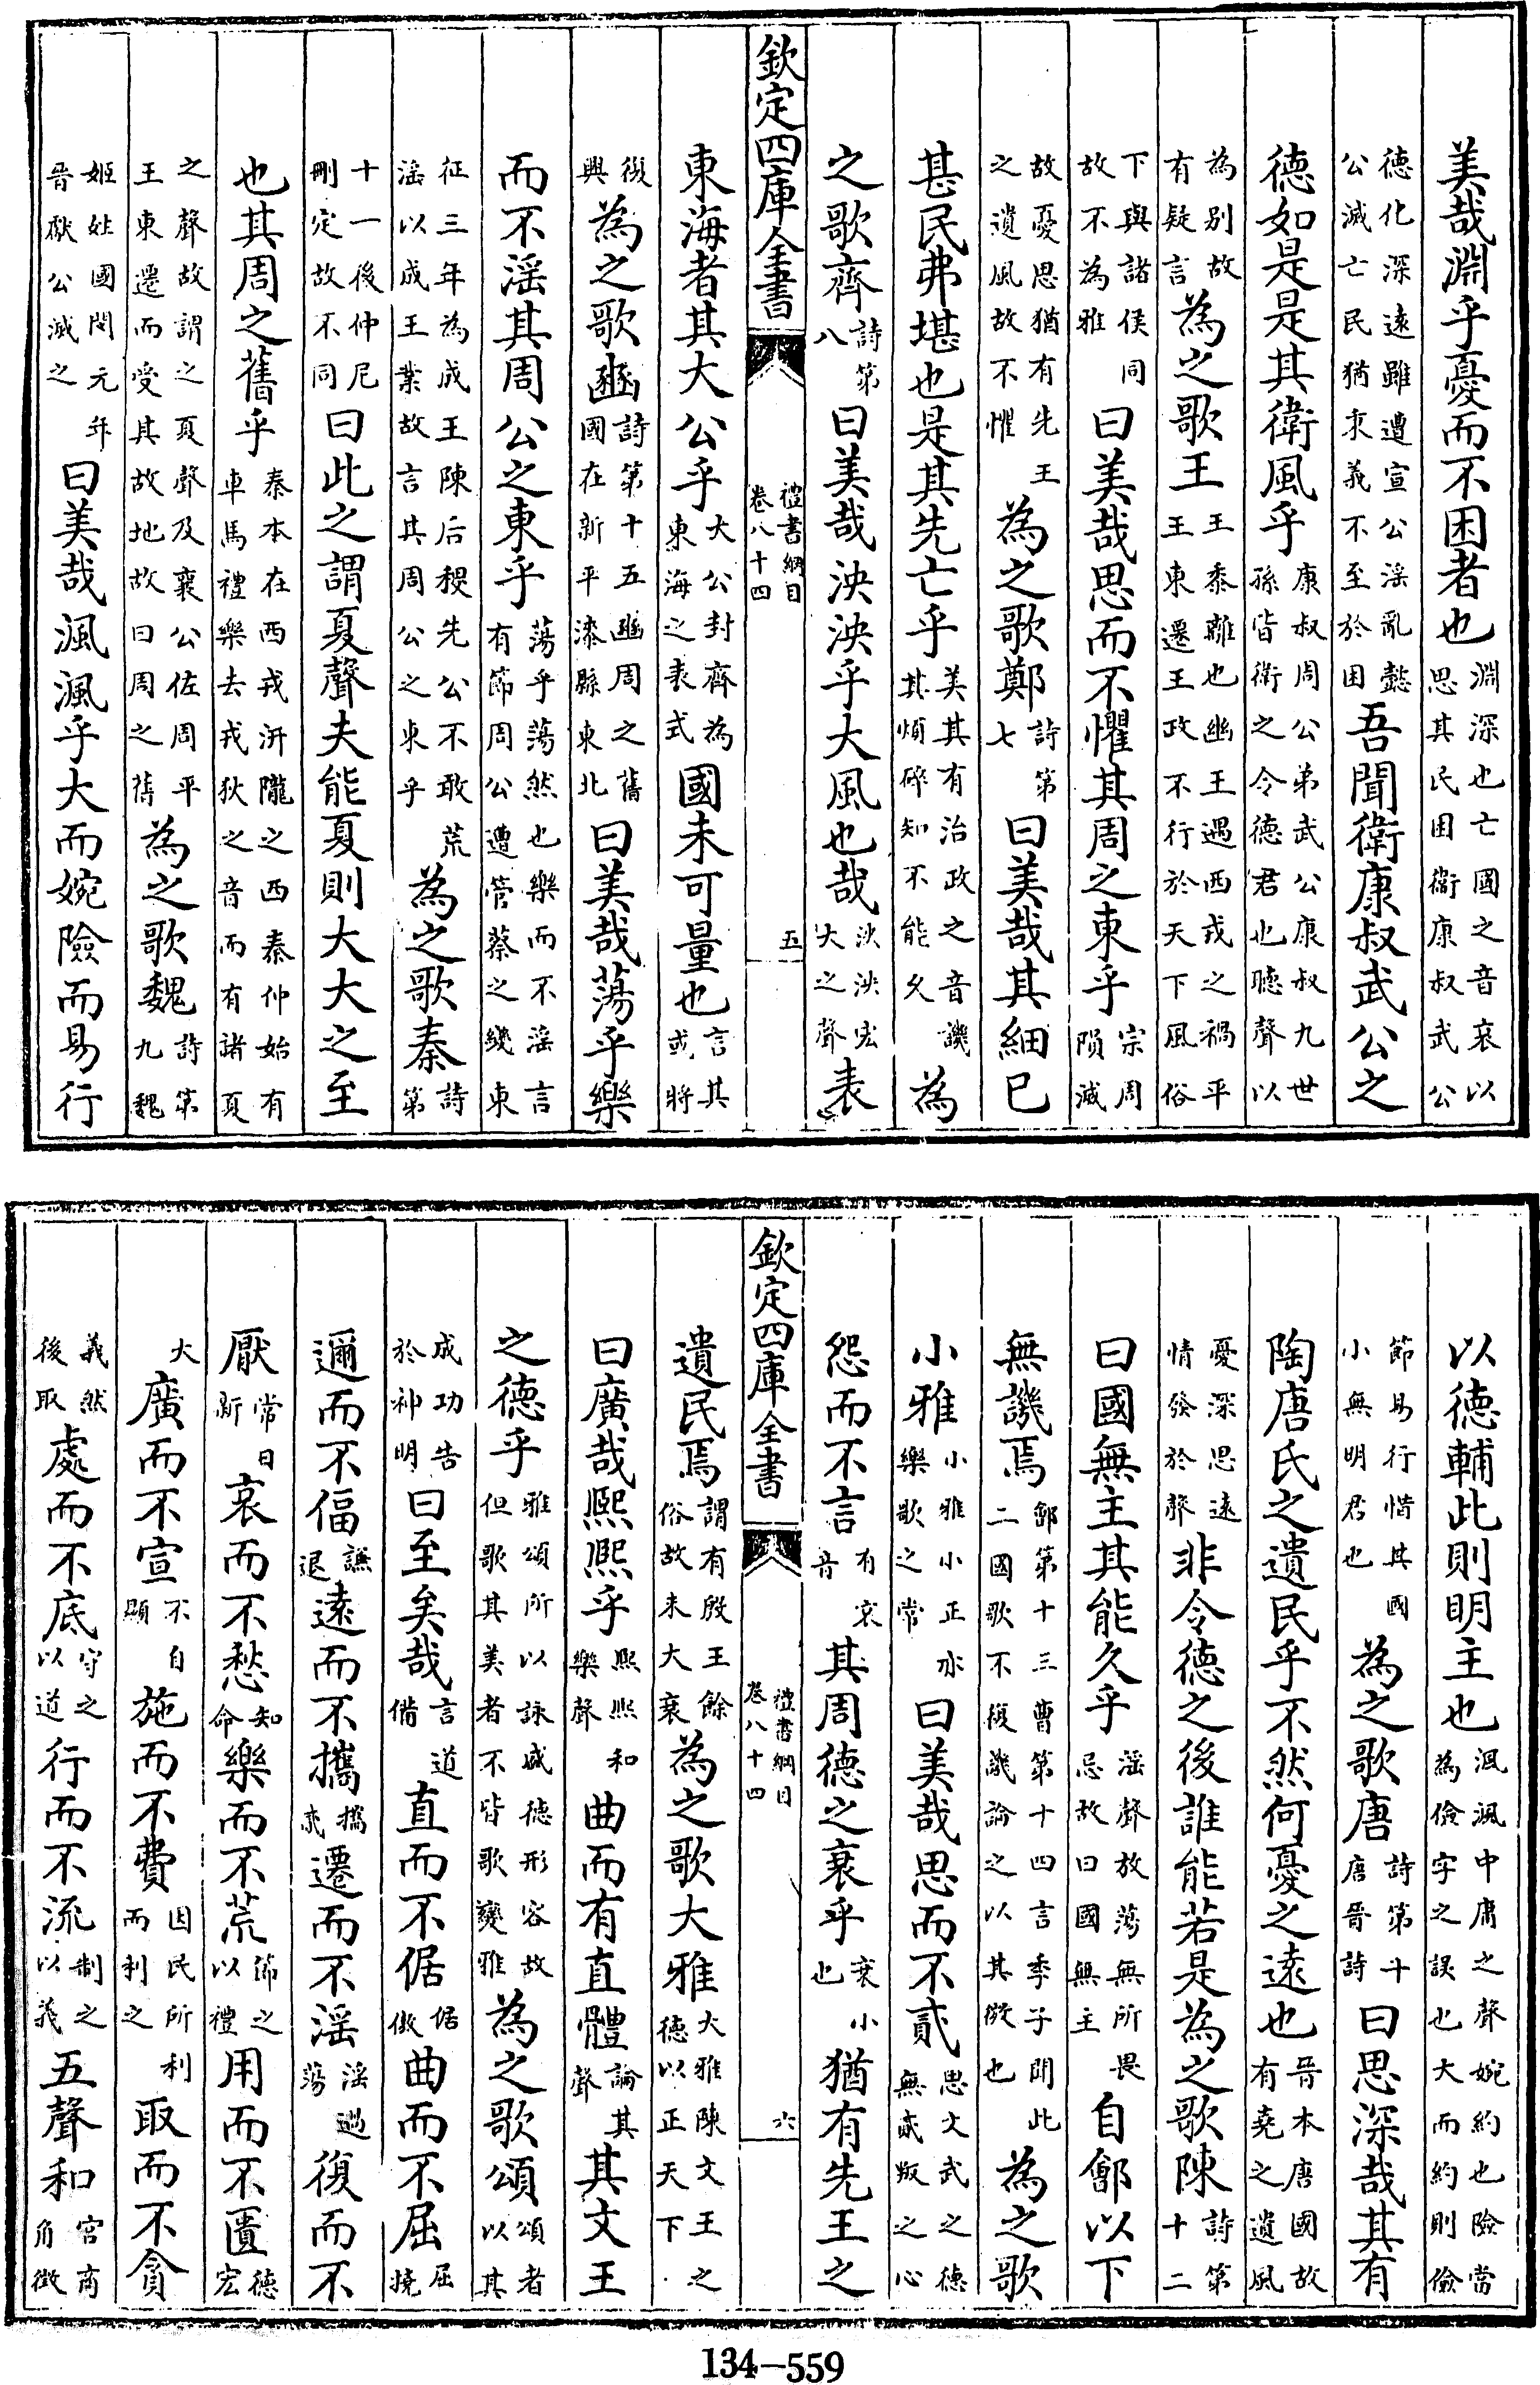 美哉淵乎憂而不困者也淵深也亡國之音哀以思其民困衛康叔武公
德化深遠雖遭宣公淫亂懿公滅亡民猶秉義不至於困吾聞衛康叔武公之
德如是是其衛風乎康叔周公弟武公康叔九世孫皆衛之令德君也聽聲以
為别故有疑言為之歌王王黍離也幽王遇西戎之禍平王東遷王政不行於天下風俗
下與諸侯同故不為雅曰美哉思而不懼其周之東乎宗周隕滅
故憂思猶有先王之遺風故不懼為之歌鄭詩第七曰美哉其細已
甚民弗堪也是其先亡乎美其有治政之音譏其煩碎知不能久為
之歌齊詩第八曰美哉泱泱乎大風也哉泱泱宏大之聲表
欽定四庫全書 禮書綱目卷八十四 五
東海者其大公乎大公封齊為東海之表式國未可量也言其或將
復興為之歌豳詩第十五豳周之舊國在新平漆縣東北曰美哉蕩乎樂
而不淫其周公之東乎蕩乎蕩然也樂而不淫言有節周公遭管蔡之變東
征三年為成王陳后稷先公不敢荒淫以成王業故言其周公之東乎為之歌秦詩第
十一後仲尼刪定故不同曰此之謂夏聲夫能夏則大大之至
也其周之舊乎秦本在西戎汧隴之西秦仲始有車馬禮樂去戎狄之音而有諸夏
之聲故謂之夏聲及襄公佐周平王東遷而受其故地故曰周之舊為之歌魏詩第九魏
姬姓國閔元年晉獻公滅之曰美哉渢渢乎大而婉險而易行
以德輔此則明主也渢渢中庸之聲婉約也險當為儉字之誤也大而約則儉
節易行惜其國小無明君也為之歌唐詩第十唐晉詩曰思深哉其有
陶唐氏之遺民乎不然何憂之遠也晉本唐國故有堯之遺風
憂深思遠情發於聲非令德之後誰能若是為之歌陳詩第十二
曰國無主其能久乎淫聲放蕩無所畏忌故曰國無主自鄶以下
無譏焉鄶第十三曹第十四言季子聞此二國歌不復譏論之以其微也為之歌
小雅小雅小正亦樂歌之常曰美哉思而不貳思文武之德無貳叛之心
怨而不言有哀音其周德之衰乎衰小也猶有先王之
欽定四庫全書 禮書綱目卷八十四 六
遺民焉謂有殷王餘俗故未大衰為之歌大雅大雅陳文王之德以正天下
曰廣哉熙熙乎熙熙和樂聲曲而有直體論其聲其文王
之德乎雅頌所以詠盛德形容故但歌其美者不皆歌變雅為之歌頌頌者以其
成功告於神明曰至矣哉言道備直而不倨倨傲曲而不屈屈撓
邇而不偪謙退遠而不攜攜貳遷而不淫淫過蕩復而不
厭常日新哀而不愁知命樂而不荒節之以禮用而不匱德宏
大廣而不宣不自顯施而不費因民所利而利之取而不貪
義然後取處而不底守之以道行而不流制之以義五聲和宮商角徵
134-559